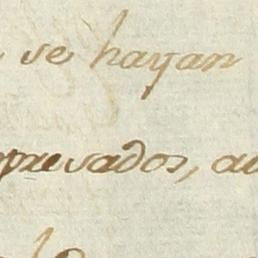 se hayan
presados, au